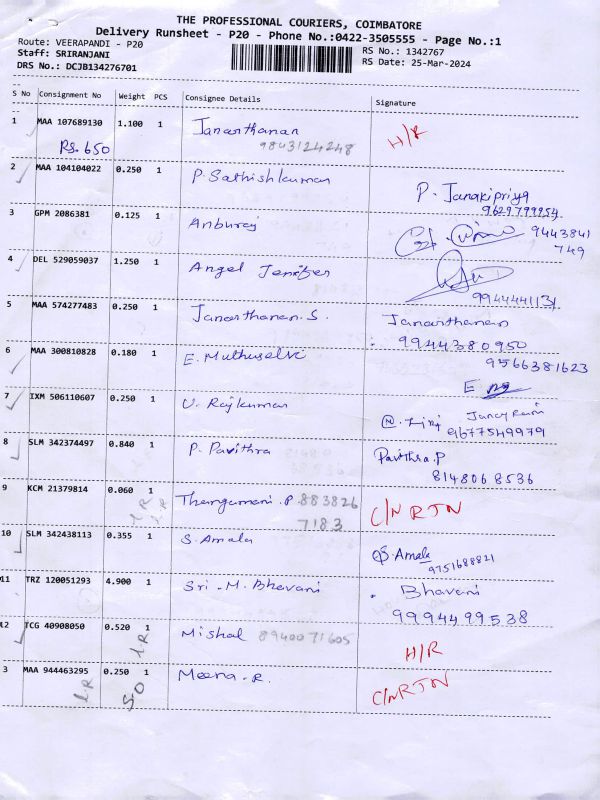 THE PROFESSIONAL COURIERS, COIMBATORE
Delivery Runsheet - P20 - Phone No.:0422-3505555 - Page No.:1
Route: VEERAPANDI - P20 RS No.: 1342767
Staff: SRIRANJANI RS Date: 25-Mar-2024
DRS No.: DCJB134276701
S No Consignment No Weight PCS Consignee Details Signature
1 MAA 107689130 1.100 1 Janarthanan H/R
Rs. 650 9843124248
2 MAA 104104022 0.250 1 P. Sathishkumar P. Janakipriya
9629799954
3 GPM 2086381 0.125 1 Anburaj 9443841
749
4 DEL 529059037 1.250 1 Angel Jenifer
9944441131
5 MAA 574277483 0.250 1 Janarthanan. S. Janarthanan
9944380950
6 MAA 300810828 0.180 1 E. Muthuselvi 9566381623
E
7 IXM 506110607 0.250 1 U. Rajkumar
9677549979
8 SLM 342374497 0.840 1 P. Pavithra Pavithra.P
8148068536
9 KCM 21379814 0.060 1 Thangamani. P 883826 C/N RTN
7183
10 SLM 342438113 0.355 1 S. Amala S. Amala
9751688821
11 TRZ 120051293 4.900 1 Sri. M. Bhavani Bhavani
9994499538
12 TCG 40908050 0.520 1 Mishal 8940071605 H/R
3 MAA 944463295 0.250 1 Meena. R. C/N RTN